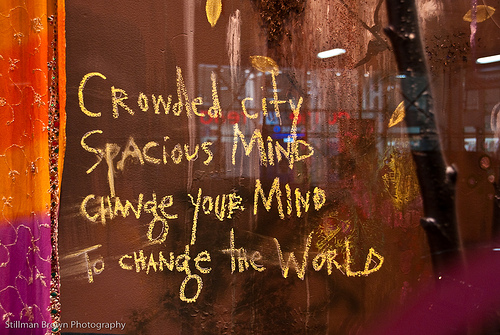 Crowded city
Spacious Mind
change your Mind
To change the World
Stillman Brown Photography